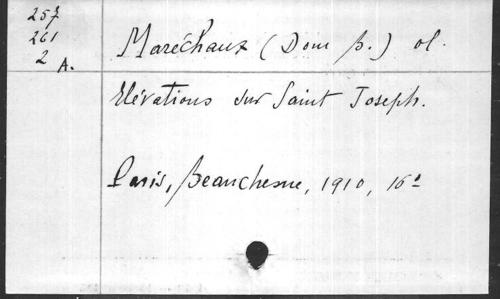 257
261
2 A.
Maréchaux (Dom B.) ol.
Elévations sur Saint Joseph.
Paris, Beauchesne, 1910, 16°